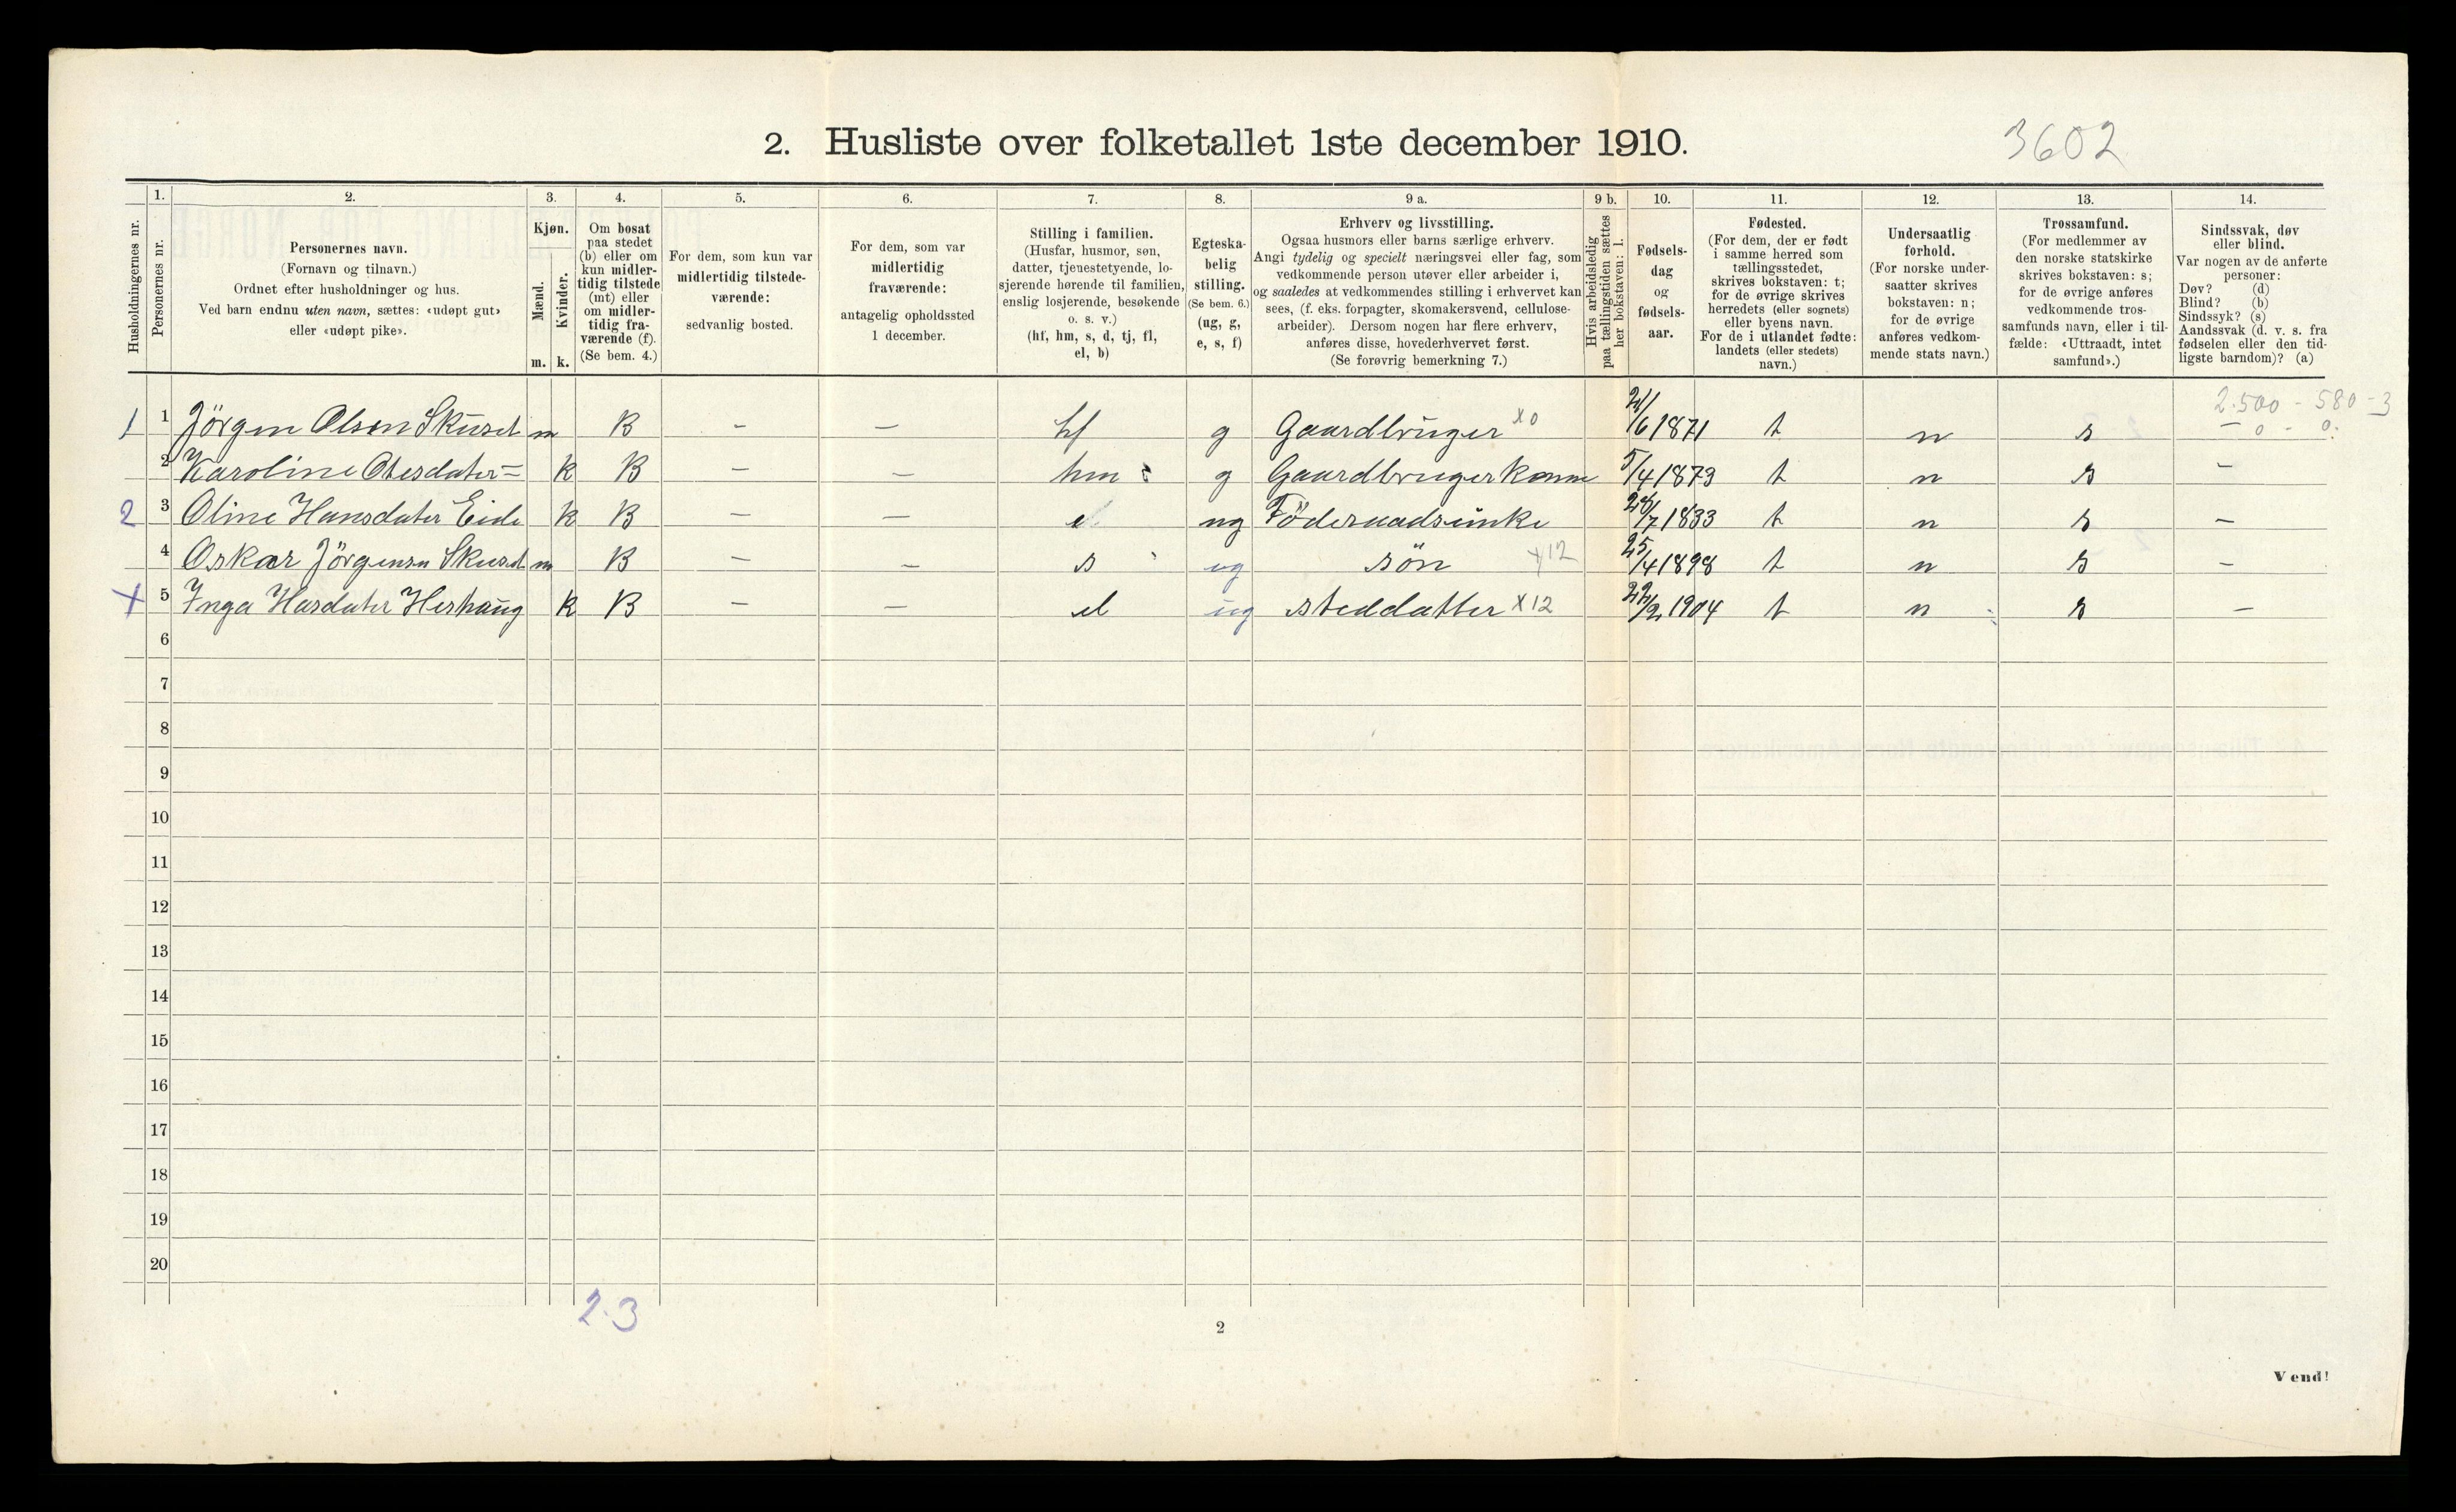 2. Husliste over folketallet 1ste december 1910.
3602
Husholdningernes nr.
1.
Personernes nr.
2.
Personernes navn.
(Fornavn og tilnavn.)
Ordnet efter husholdninger og hus.
Ved barn endnu uten navn, sættes: «udøpt gut»
eller «udøpt pike».
3.
Kjøn.
Mænd.
Kvinder.
m. k.
4.
Om bosat
paa stedet
(b) eller om
kun midler-
tidig tilstede
(mt) eller
om midler-
tidig fra-
værende (f).
(Se bem. 4.)
5.
For dem, som kun var
midlertidig tilstede-
værende:
sedvanlig bosted.
6.
For dem, som var
midlertidig
fraværende:
antagelig opholdssted
1 december.
7.
Stilling i familien.
(Husfar, husmor, søn,
datter, tjenestetyende, lo-
sjerende hørende til familien,
enslig losjerende, besøkende
o. s. v.)
(hf, hm, s, d, tj, fl,
el, b)
8.
Egteska-
belig
stilling.
(Se bem. 6.)
(ug, g,
e, s, f)
9 a.
Erhverv og livsstilling.
Ogsaa husmors eller barns særlige erhverv.
Angi tydelig og specielt næringsvei eller fag, som
vedkommende person utøver eller arbeider i,
og saaledes at vedkommendes stilling i erhvervet kan
sees, (f. eks. forpagter, skomakersvend, cellulose-
arbeider). Dersom nogen har flere erhverv,
anføres disse, hovederhvervet først.
(Se forøvrig bemerkning 7.)
9 b.
Hvis arbeidsledig
paa tællingstiden sættes
her bokstaven: l.
10.
Fødsels-
dag
og
fødsels-
aar.
11.
Fødested.
(For dem, der er født
i samme herred som
tællingsstedet,
skrives bokstaven: t;
for de øvrige skrives
herredets (eller sognets)
eller byens navn.
For de i utlandet fødte:
landets (eller stedets)
navn.)
12.
Undersaatlig
forhold.
(For norske under-
saatter skrives
bokstaven: n;
for de øvrige
anføres vedkom-
mende stats navn.)
13.
Trossamfund.
(For medlemmer av
den norske statskirke
skrives bokstaven: s;
for de øvrige anføres
vedkommende tros-
samfunds navn, eller i til-
fælde: «Uttraadt, intet
samfund».)
14.
Sindssvak, døv
eller blind.
Var nogen av de anførte
personer:
Døv? (d)
Blind? (b)
Sindssyk? (s)
Aandssvak (d. v. s. fra
fødselen eller den tid-
ligste barndom)? (a)
2.500 - 580 - 3
1 1 Jörgen Olsen Skuset m B - - hf g Gaardbruger x0 21/6 1871 t n s - 0 - 0.
2 Karoline Olesdater = k B - - hm g Gaardbrugerkone 5/4 1873 t n s -
2 3 Oline Hansdater Eide k B - - el ug 28/7 1833 t n s -
4 Oskar Jörgensen Skuset m B - - s ug sön x12 25/4 1898 t n s -
x 5 Inga Hasdater Herhaug k B - - el ug steddatter x12 22/2 1904 t n s -
6
7
8
9
10
11
12
13
14
15
16
17
18
19
20
2.3
2
Vend!